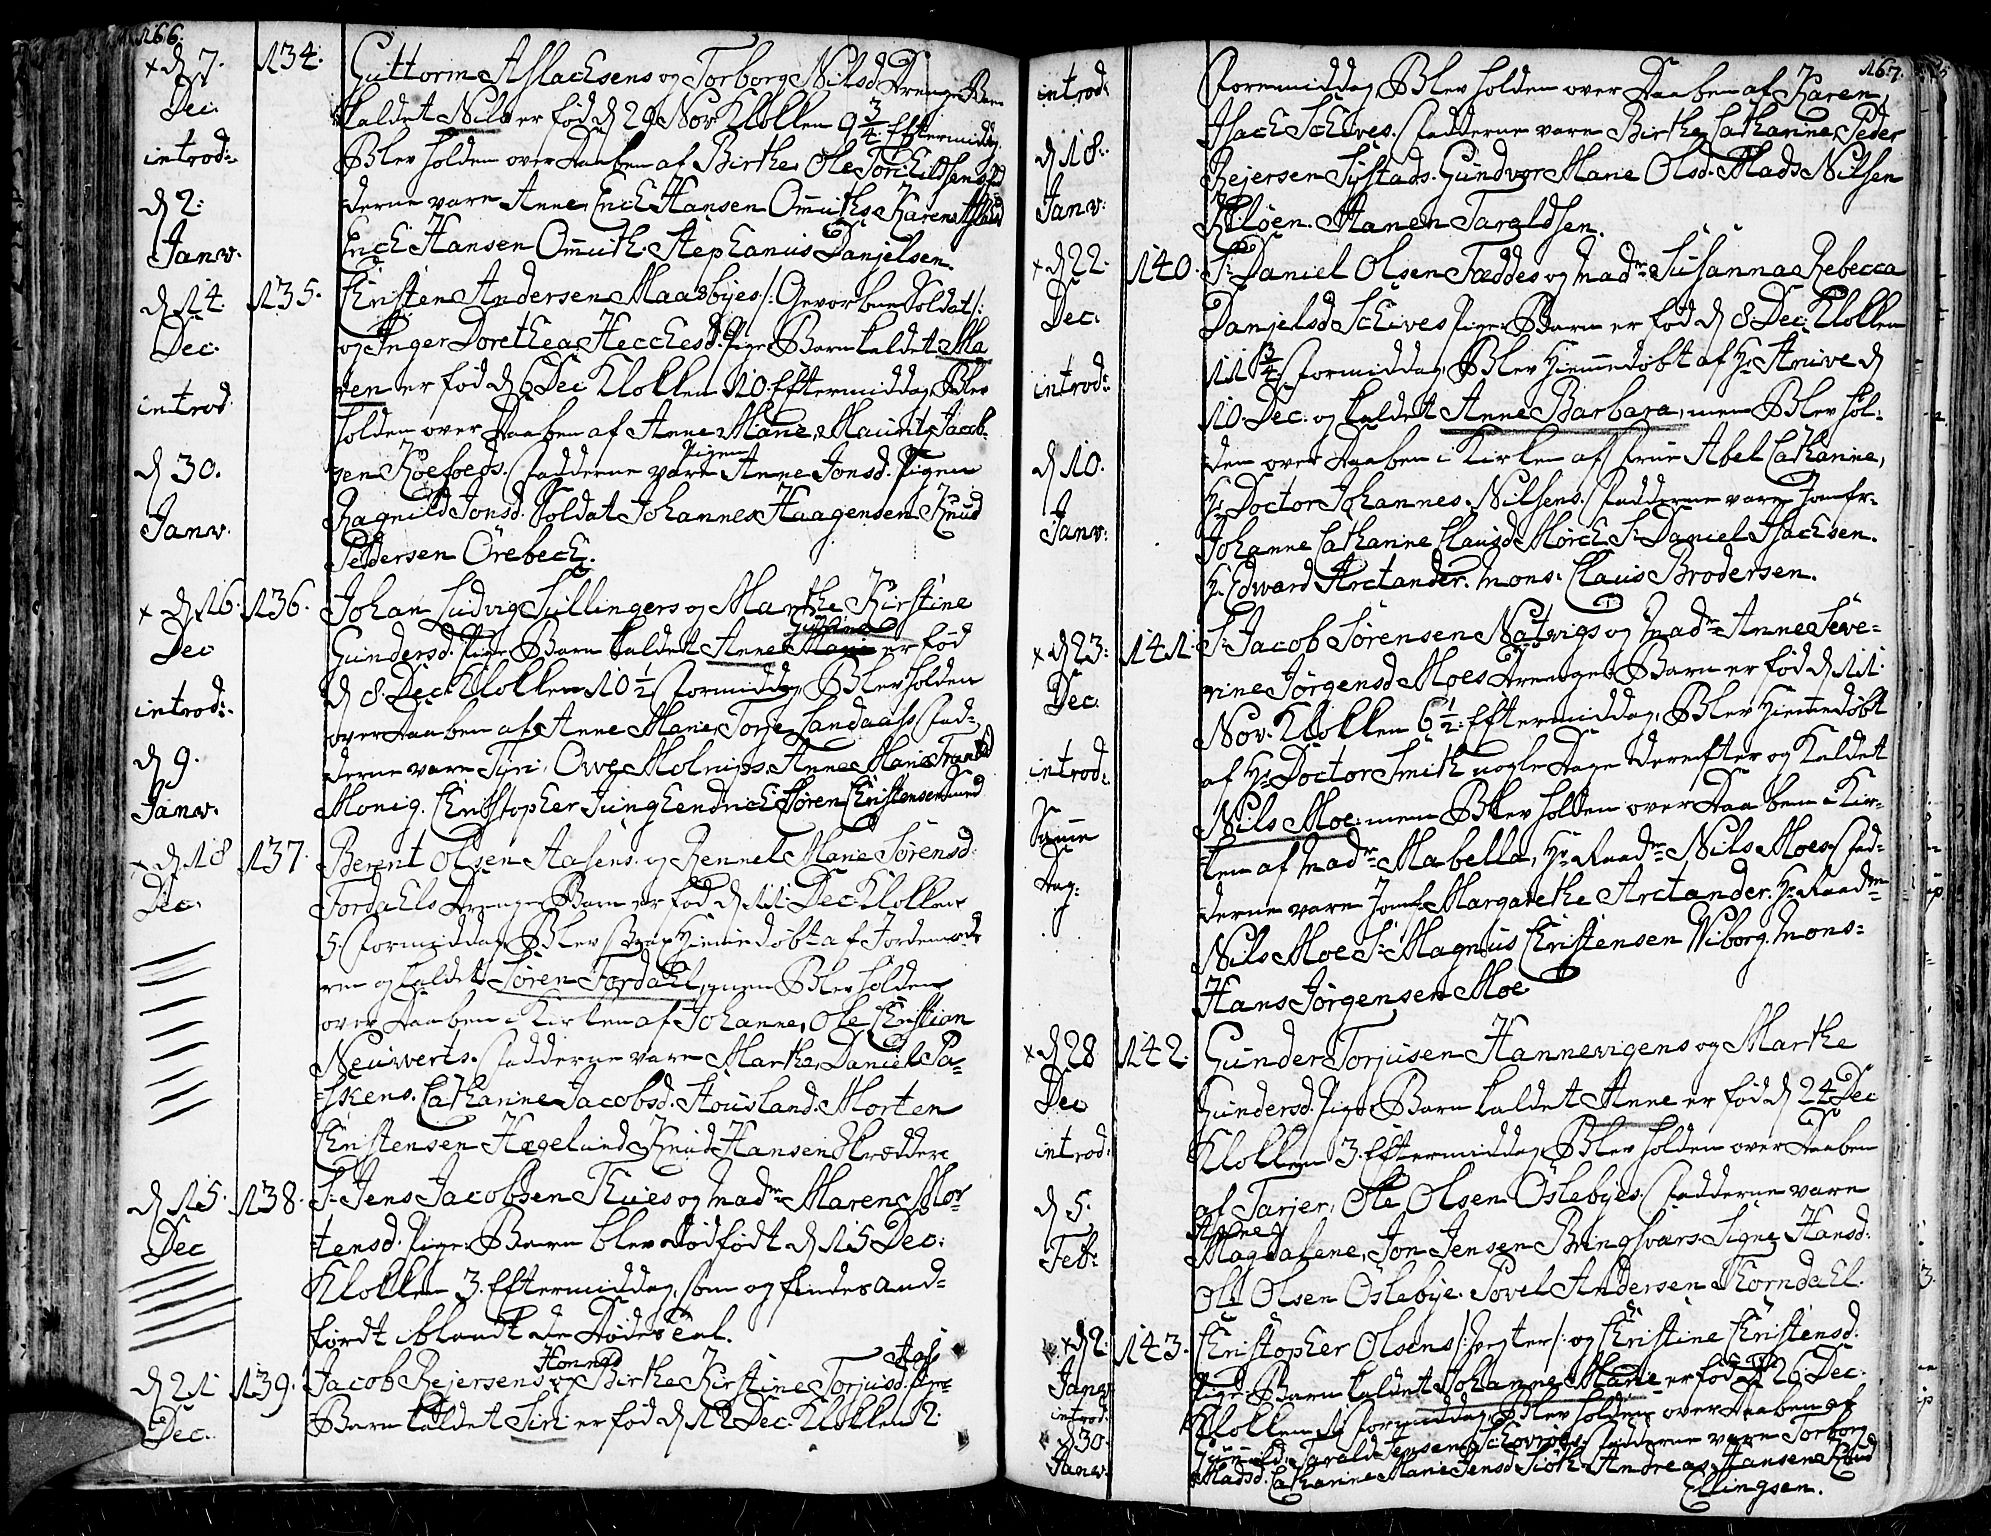 166.
x d 7. Dec. introd: d 2: Janv:
134. Guttorm Aslachsens og Torborg Nilsd Drenge Barn
kaldet Nils er fød d 29 Nov Klokken 9 3/4 Eftermiddag
Blev holden over Daaben af Birthe, Ole Torchildsens fad
derne vare Anne, Erich Hansen Omuths Karen Aslacsd
Erich Hansen Omuth. Stephanus Danjelsen.
d 14. Dec. introd. d 30. Janv.
135. Christen Andersen Maasbyes /: Gevorben Soldat :/
og Inger Dorethea Hecchesd. Pige Barn kaldet Ma
ren er fød d 6 Dec Klokken 10. Eftermiddag, Blev
holden over Daaben af Anne Marie, Mauritz Jacob-
sen Koefoeds. Fadderne vare Pigen Anne Jonsd. Pigen
Ragnild Jonsd. Soldat Johannes Haagensen Knud
Peddersen Örebech.
x d 16. Dec introd:. d 9. Janv.
136. Johan Ludvig Sillingers og Marthe Kirstine
Gundersd. Pige Barn kaldet Anne Gurine er fød
d 8. Dec. Klokken 10 1/2 Formiddag Blev holden
over Daaben af Anne Marie, Torje Landaass. Fad-
derne vare Siri, Owe Molnips. Anne Marie
Monig. Christopher Jung Søren Christensen Smed
x d 18 Dec.
137. Berent Olsen Aasens og Rennel Marie Sørensd:
Fordahls Drenge Barn er fød d 11. Dec Klokken
5. Formiddag Blev Hiemmedøbt af Jordemode
ren og kaldet Søren Fordahl, men Blev holden
over Daaben i Kirken af Johanne, Ole Christian
Neuwerts. Fadderne vare Marthe, Daniel Pa-
Catharine Jacobsd. Stousland. Morten
Christensen Hægelund Knud Hansen Skræddere
d 15. Dec
138. Sr Jens Jacobsen Thues og Madme Maren Mor
tensd. Pige Barn blev dødfødt d 15 Dec:
Klokken 3. Eftermiddag, som og findes and-
ført iblandt de Dødes Tal.
d 21 Dec.
139. Jacob Rejersens Honnes og Birthe Kirstine Torjusd. Pige
Barn kaldet Siri er fød d 12 Dec. Klokken 2.
167.
introd: d 18: Janv:
Formiddag, Blev holden over Daaben af Karen,
Isach Scheves. Fadderne vare Birthe Catharine, Peder
Rejersen Systads. Gundvor Marie Olsd. Mads Nilsen
Kiløen. Hanen Taraldsen.
x d 22. Dec. introd: d 10. Janv:
140. Sr Daniel Olsen Fæddes og Madme Susanna Rebecca
Danjelsd Schives Pige Barn er fød d 8. Dec. Klokken
11 3/4 Formiddag, Blev Hiemmedøbt af Hr Struve d
10. Dec. og kaldet Anne Barbara, men Blev hol-
den over Daaben i Kirken af Frue Abel Cathrine,
Hr Doctor Johannes Nilsens. Fadderne vare Jomfr.
Johanne Catharine Clausd Mørch Sr Daniel Isachsen.
Hr Edward Arctander. Mons. Claus Brodersen.
x d 23. Dec. introd: Samme Dag:
141. Sr Jacob Sørensen Natvigs og Madme Anne Seve-
rine Jørgensd Moes Drenge Barn er fød d 11.
Nov. Klokken 6 1/2. Eftermiddag, Blev Hiemmedøbt
af Hr Doctor Smith nogle Dage derefter og Kaldet
Nils Moe. men Blev holden over Daaben i Kir-
ken af Madme Mabella, Hr Raadm Nils Moes. Fad-
derne vare Jomf Margarethe Arctander. Hr Raadm
Nils Moe Sr Magnus Christensen Wiborg. Mons:
Hans Jørgensen Moe
x d 28 Dec introd: d 5. Feb:
142. Gunder Torjusen Hannevigens og Marthe
Gundersd. Pige Barn kaldet Anne er fød d 24 Dec
Klokken 3. Eftermiddag, Blev holden over Daaben
af Tarjer, Ole Olsen Öslebyes. Fadderne vare
Anne Magdalene, Jon Jensen Bringsværs Signe Hansd.
Ole Olsen Öslebye. Sovel Andersen Thorndahl.
x d 2. Janv introd. d 30. Janv.
143. Christopher Olsens /: :/ og Christine Christensd.
Pige Barn kaldet Johanne Marie er fød d 26 Dec.
Klokken Formiddag, Blev holden over Daaben af
Gunnild, Tarald Jensens Fadderne vare Torborg
Madsd. Catharine Marie Jensd Andreas Hansen Knud
Ellingsen.